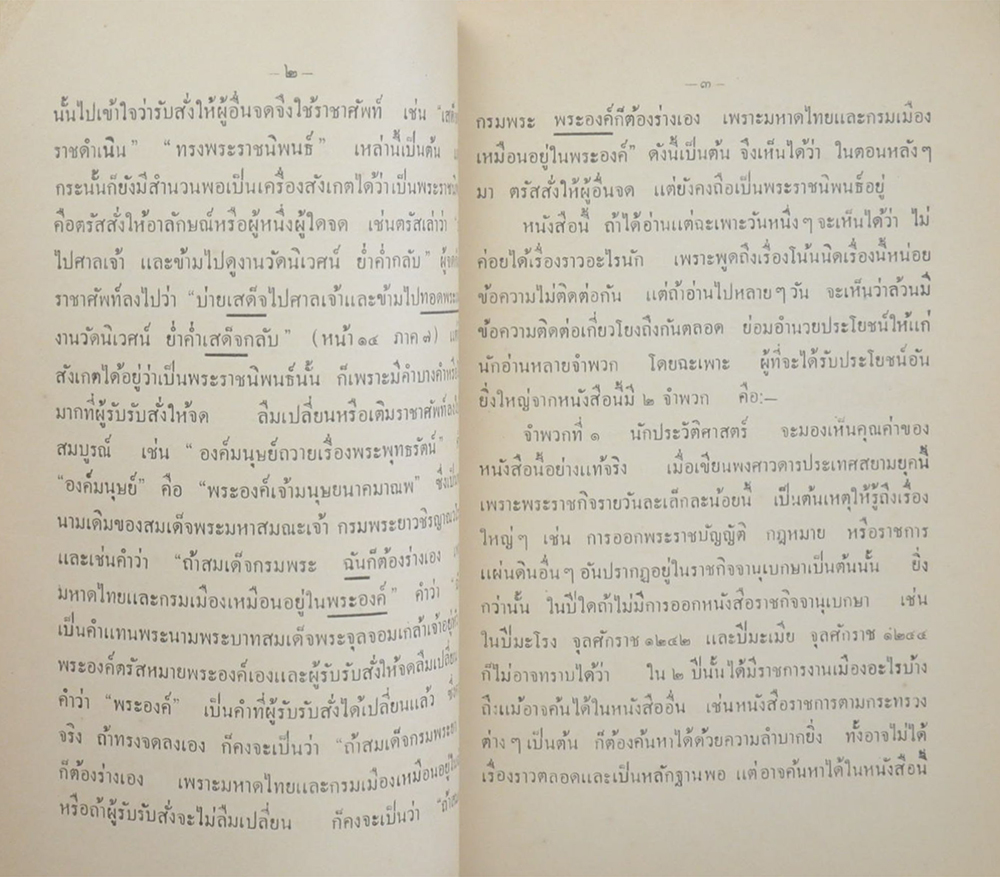 —๒—
นั้นไปเข้าใจว่ารับสั่งให้ผู้อื่นจดจึงใช้ราชาศัพท์ เช่น “เสด็จ
ราชดำเนิน” “ทรงพระราชนิพนธ์” เหล่านี้เป็นต้น
กระนั้นก็ยังมีสำนวนพอเป็นเครื่องสังเกตได้ว่าเป็นพระราช
คือตรัสสั่งให้อาลักษณ์หรือผู้หนึ่งผู้ใดจด เช่นตรัสเล่าว่า
ไปศาลเจ้า และข้ามไปดูงานวัดนิเวศน์ ย่ำค่ำกลับ”
ราชาศัพท์ลงไปว่า “บ่ายเสด็จไปศาลเจ้าและข้ามไปทอดพระ
งานวัดนิเวศน์ ย่ำค่ำเสด็จกลับ” (หน้า ๑๔ ภาค ๗)
สังเกตได้อยู่ว่าเป็นพระราชนิพนธ์นั้น ก็เพราะมีคำบางคำ
มากที่ผู้รับรับสั่งให้จด ลืมเปลี่ยนหรือเติมราชาศัพท์
สมบูรณ์ เช่น “องค์มนุษย์ถวายเรื่องพระพุทธรัตน์”
“องค์มนุษย์” คือ “พระองค์เจ้ามนุษยนาคมาณพ”
นามเดิมของสมเด็จพระมหาสมณะเจ้า กรมพระยาวชิรญาณ
และเช่นคำว่า “ถ้าสมเด็จกรมพระ ฉันก็ต้องร่างเอง
มหาดไทยและกรมเมืองเหมือนอยู่ในพระองค์” คำว่า
เป็นคำแทนพระนามพระบาทสมเด็จพระจุลจอมเกล้าเจ้า
พระองค์ตรัสหมายพระองค์เองและผู้รับรับสั่งให้จดลืมเปลี่ยน
คำว่า “พระองค์” เป็นคำที่ผู้รับรับสั่งได้เปลี่ยนแล้ว
จริง ถ้าทรงจดลงเอง ก็คงจะเป็นว่า “ถ้าสมเด็จกรมพระ
ก็ต้องร่างเอง เพราะมหาดไทยและกรมเมืองเหมือนอยู่
หรือถ้าผู้รับรับสั่งจะไม่ลืมเปลี่ยน ก็คงจะเป็นว่า
—๓—
กรมพระ พระองค์ก็ต้องร่างเอง เพราะมหาดไทยและกรมเมือง
เหมือนอยู่ในพระองค์” ดังนี้เป็นต้น จึงเห็นได้ว่า ในตอนหลังๆ
มา ตรัสสั่งให้ผู้อื่นจด แต่ยังคงถือเป็นพระราชนิพนธ์อยู่
หนังสือนี้ ถ้าได้อ่านแต่ฉะเพาะวันหนึ่งๆ จะเห็นได้ว่า ไม่
ค่อยได้เรื่องราวอะไรนัก เพราะพูดถึงเรื่องโน้นนิดเรื่องนี้หน่อย
ข้อความไม่ติดต่อกัน แต่ถ้าอ่านไปหลายๆ วัน จะเห็นว่าล้วนมี
ข้อความติดต่อเกี่ยวโยงถึงกันตลอด ย่อมอำนวยประโยชน์ให้แก่
นักอ่านหลายจำพวก โดยฉะเพาะ ผู้ที่จะได้รับประโยชน์อัน
ยิ่งใหญ่จากหนังสือนี้มี ๒ จำพวก คือ:—
จำพวกที่ ๑ นักประวัติศาสตร์ จะมองเห็นคุณค่าของ
หนังสือนี้อย่างแท้จริง เมื่อเขียนพงศาวดารประเทศสยามยุคนี้
เพราะพระราชกิจรายวันละเล็กละน้อยนี้ เป็นต้นเหตุให้รู้ถึงเรื่อง
ใหญ่ๆ เช่น การออกพระราชบัญญัติ กฎหมาย หรือราชการ
แผ่นดินอื่นๆ อันปรากฏอยู่ในราชกิจจานุเบกษาเป็นต้นนั้น ยิ่ง
กว่านั้น ในปีใดถ้าไม่มีการออกหนังสือราชกิจจานุเบกษา เช่น
ในปีมะโรง จุลศักราช ๑๒๔๒ และปีมะเมีย จุลศักราช ๑๒๔๔
ก็ไม่อาจทราบได้ว่า ใน ๒ ปีนั้นได้มีราชการงานเมืองอะไรบ้าง
ถึงแม้อาจค้นได้ในหนังสืออื่น เช่นหนังสือราชการตามกระทรวง
ต่างๆ เป็นต้น ก็ต้องค้นหาได้ด้วยความลำบากยิ่ง ทั้งอาจไม่ได้
เรื่องราวตลอดและเป็นหลักฐานพอ แต่อาจค้นหาได้ในหนังสือนี้